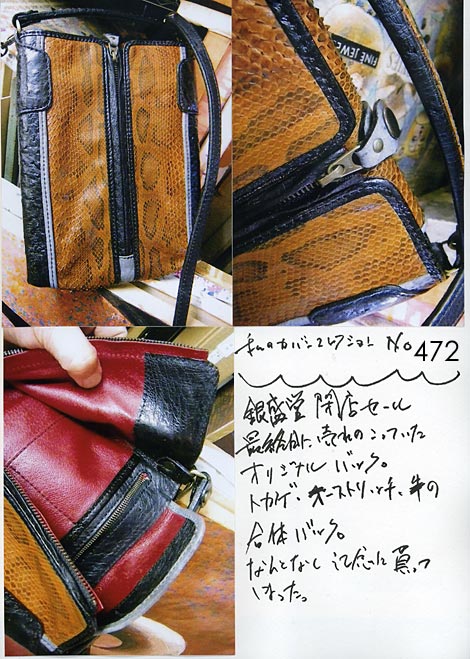 FINE JEWE
私のカバンコレクション No 472
銀盛堂 閉店セール
最終日に売れのこっていた
オリジナル バッグ。
トカゲ・オーストリッチ、牛の
合体バッグ。
なんとなし 記念に買って
しまった。